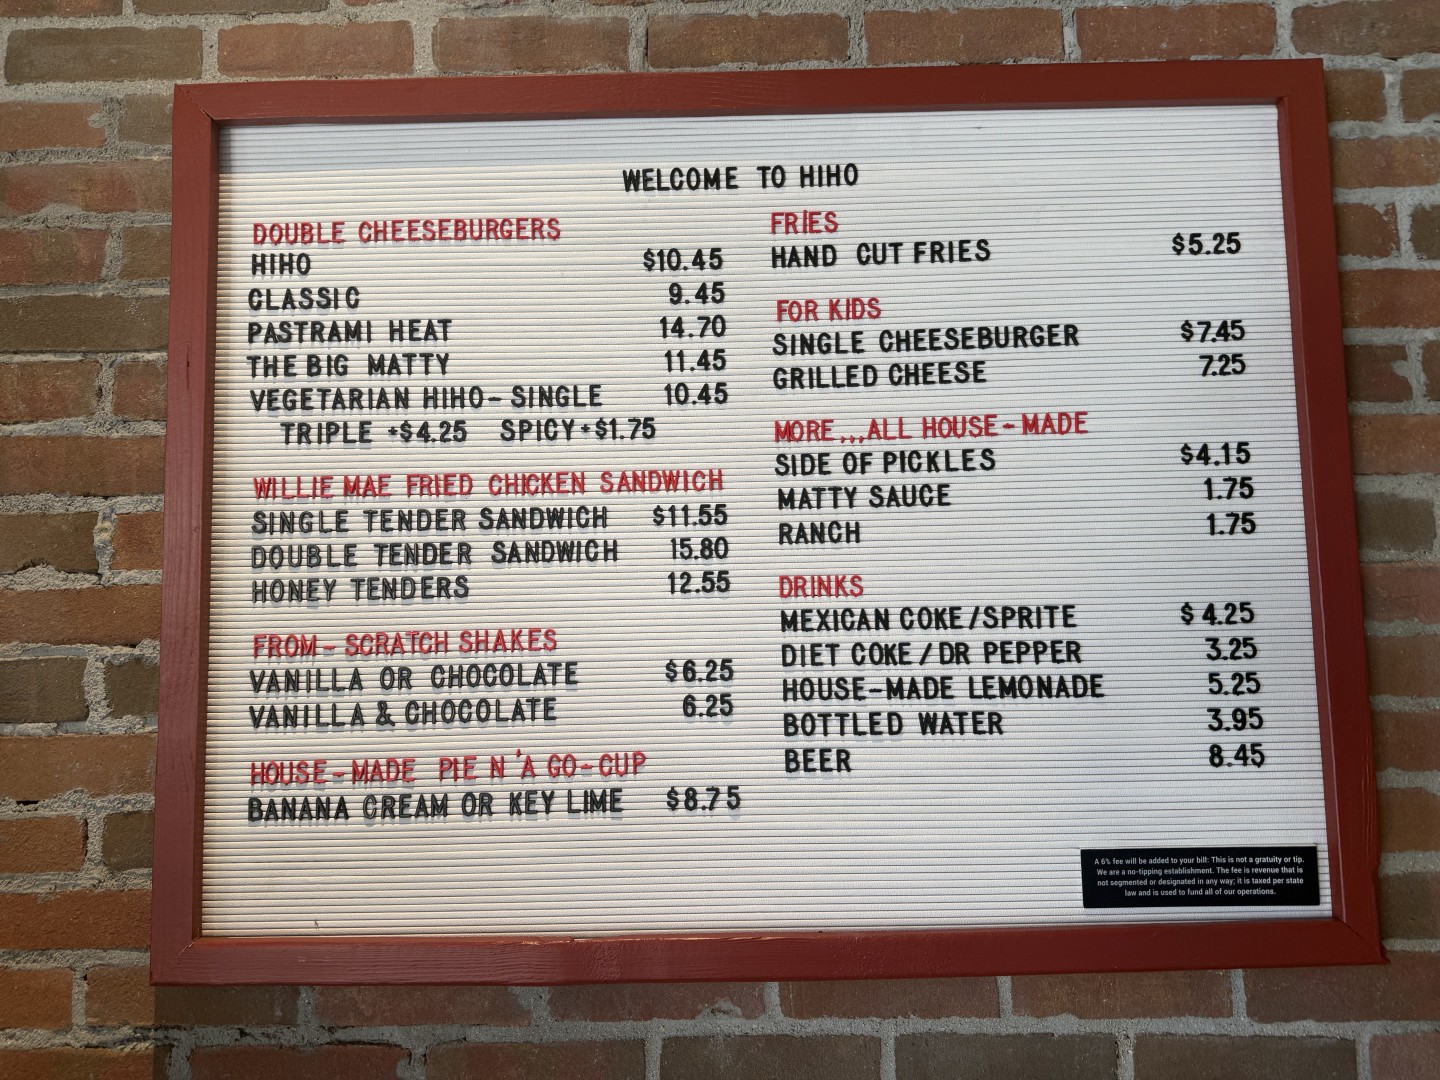 WELCOME TO HIHO
DOUBLE CHEESEBURGERS
HIHO $10.45
CLASSIC 9.45
PASTRAMI HEAT 14.70
THE BIG MATTY 11.45
VEGETARIAN HIHO-SINGLE 10.45
TRIPLE +$4.25 SPICY+$1.75
WILLIE MAE FRIED CHICKEN SANDWICH
SINGLE TENDER SANDWICH $11.55
DOUBLE TENDER SANDWICH 15.80
HONEY TENDERS 12.55
FROM-SCRATCH SHAKES
VANILLA OR CHOCOLATE $6.25
VANILLA & CHOCOLATE 6.25
HOUSE-MADE PIE N 'A GO-CUP
BANANA CREAM OR KEY LIME $8.75
FRIES
HAND CUT FRIES $5.25
FOR KIDS
SINGLE CHEESEBURGER $7.45
GRILLED CHEESE 7.25
MORE,,,ALL HOUSE-MADE
SIDE OF PICKLES $4.15
MATTY SAUCE 1.75
RANCH 1.75
DRINKS
MEXICAN COKE/SPRITE $4.25
DIET COKE/DR PEPPER 3.25
HOUSE-MADE LEMONADE 5.25
BOTTLED WATER 3.95
BEER 8.45
A 6% fee will be added to your bill: This is not a gratuity or tip.
We are a no-tipping establishment. The fee is revenue that is
not segmented or designated in any way; it is taxed per state
law and is used to fund all of our operations.